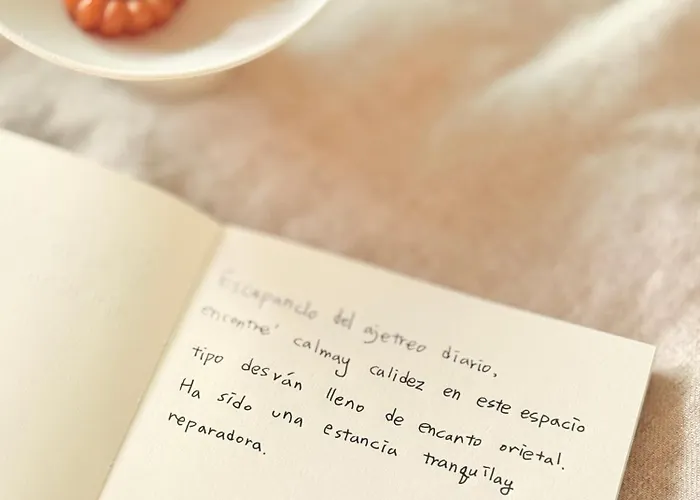 Escapando del ajetreo diario,
encontre' calmay calidez en este espacio
tipo desván lleno de encanto orietal.
Ha sido una estancia tranquilay
reparadora.